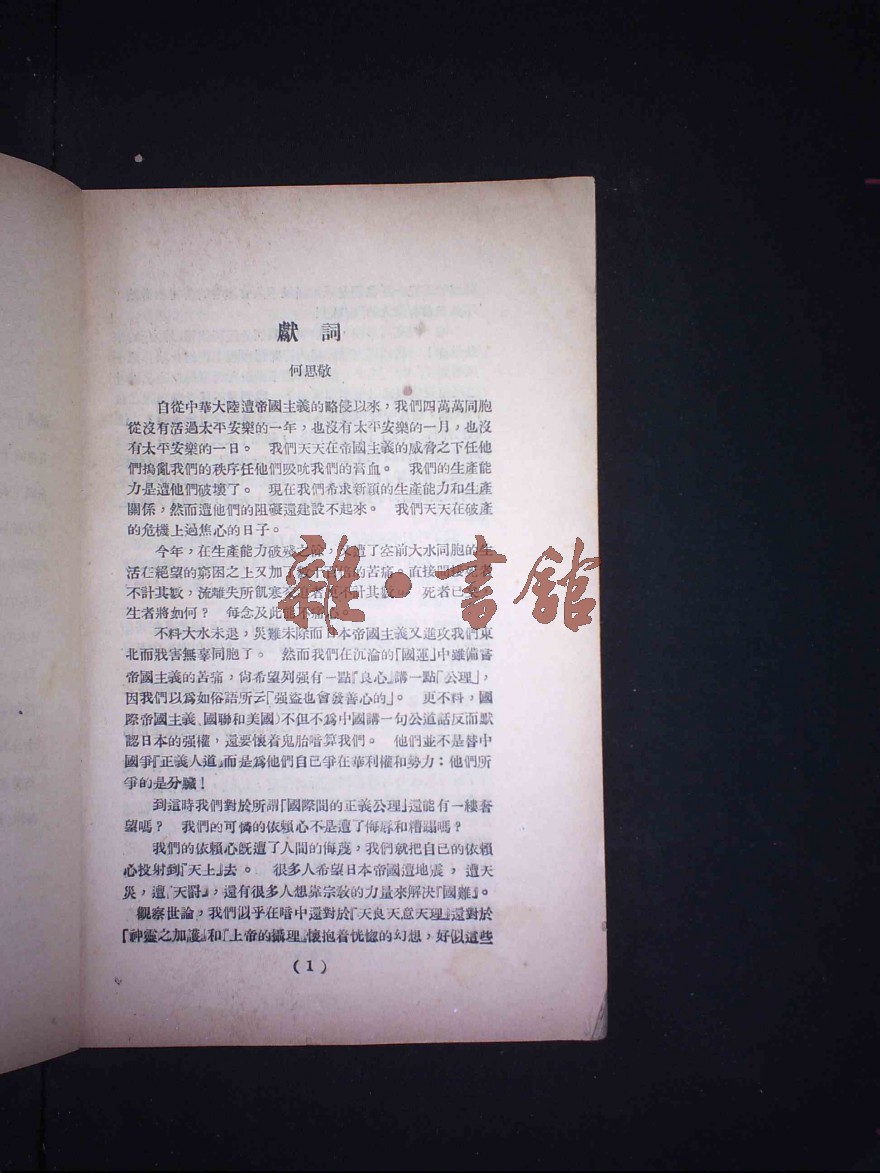 獻詞
何思敬
自從中華大陸遭帝國主義的略侵以來,我們四萬萬同胞
從沒有活過太平安樂的一年,也沒有太平安樂的一月,也沒
有太平安樂的一日。 我們天天在帝國主義的威脅之下任他
們搗亂我們的秩序任他們吸吮我們的膏血。 我們的生產能
力是遭他們破壞了。 現在我們希求新穎的生產能力和生產
關係,然而遭他們的阻礙還建設不起來。 我們天天在破產
的危機上過焦心的日子。
今年,在生產能力破殘之餘,又遭了空前大水同胞的生
活在絕望的窮困之上又加了數十百倍的苦痛。直接間接死者
不計其數,流離失所飢寒交迫者更不計其數。 死者已矣,
生者將如何? 每念及此能不痛心。
不料大水未退,災難未除而日本帝國主義又進攻我們東
北而戕害無辜同胞了。 然而我們在沉淪的「國運」中雖備嘗
帝國主義的苦痛,尙希望列强有一點『良心』講一點「公理」,
因我們以爲如俗語所云「强盜也會發善心的」。 更不料,國
際帝國主義、國聯和美國)不但不爲中國講一句公道話反而默
認日本的强權,還要懷着鬼胎暗算我們。 他們並不是替中
國爭『正義人道』而是爲他們自己爭在華利權和勢力:他們所
爭的是分臟!
到這時我們對於所謂「國際間的正義公理」還能有一縷奢
望嗎? 我們的可憐的依賴心不是遭了侮辱和糟蹋嗎?
我們的依賴心旣遭了人間的侮蔑,我們就把自己的依賴
心投射到『天上』去。 很多人希望日本帝國遭地震,遭天
災,遭『天罸』,還有很多人想靠宗敎的力量來解決「國難』。
觀察世論,我們似乎在暗中還對於『天良天意天理』還對於
「神靈之加護』和『上帝的攝理』懷抱着恍惚的幻想,好似這些
(1)
雜·書舘